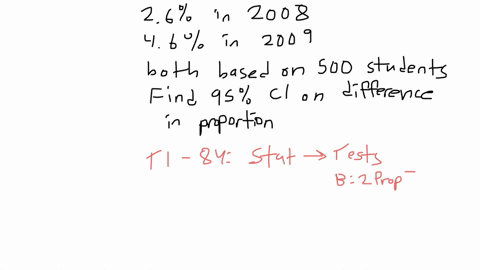 2.6% in 2008
4.6% in 2009
both based on 500 students
Find 95% CI on difference
in proportion
TI-84: Stat → Tests
B: 2 Prop